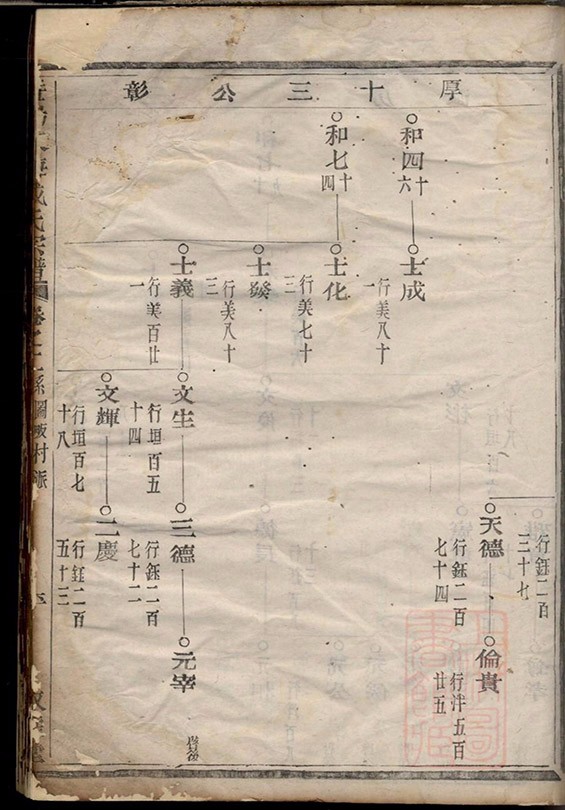 厚十三公彰
天德
行鈺二百七十四
行鈺二百三十七
倫貴
行泮五百廿五
和四
十六
士成
行美八十一
和七
十四
士化
行美七十三
士燊
行美八十三
士義
行美百廿一
文生
行垣百五十四
三德
行鈺二百七十二
元宰
文輝
行垣百七十八
二慶
行鈺二百五十三
氏宗譜
村派